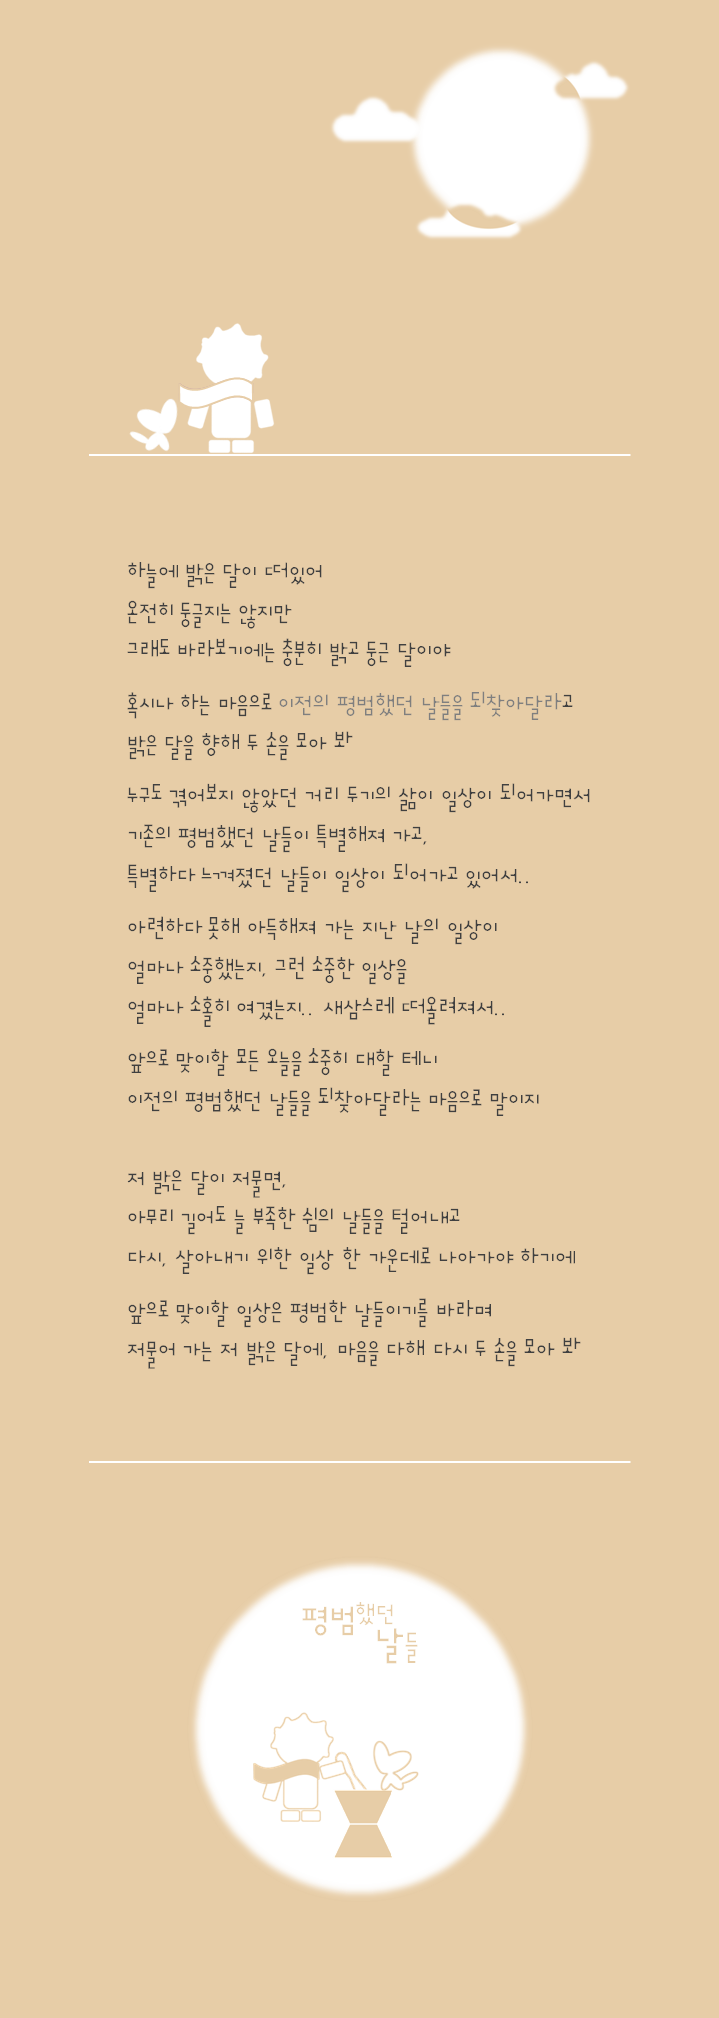 하늘에 밝은 달이 떠있어
온전히 둥글지는 않지만
그래도 바라보기에는 충분히 밝고 둥근 달이야
혹시나 하는 마음으로 이전의 평범했던 날들을 되찾아달라고
밝은 달을 향해 두 손을 모아 봐
누구도 겪어보지 않았던 거리 두기의 삶이 일상이 되어가면서
기존의 평범했던 날들이 특별해져 가고,
특별하다 느껴졌던 날들이 일상이 되어가고 있어서..
아련하다 못해 아득해져 가는 지난 날의 일상이
얼마나 소중했는지, 그런 소중한 일상을
얼마나 소홀히 여겼는지.. 새삼스레 떠올려져서..
앞으로 맞이할 모든 오늘을 소중히 대할 테니
이전의 평범했던 날들을 되찾아달라는 마음으로 말이지
저 밝은 달이 저물면,
아무리 길어도 늘 부족한 쉼의 날들을 털어내고
다시, 살아내기 위한 일상 한 가운데로 나아가야 하기에
앞으로 맞이할 일상은 평범한 날들이기를 바라며
저물어 가는 저 밝은 달에, 마음을 다해 다시 두 손을 모아 봐
평범했던
날들